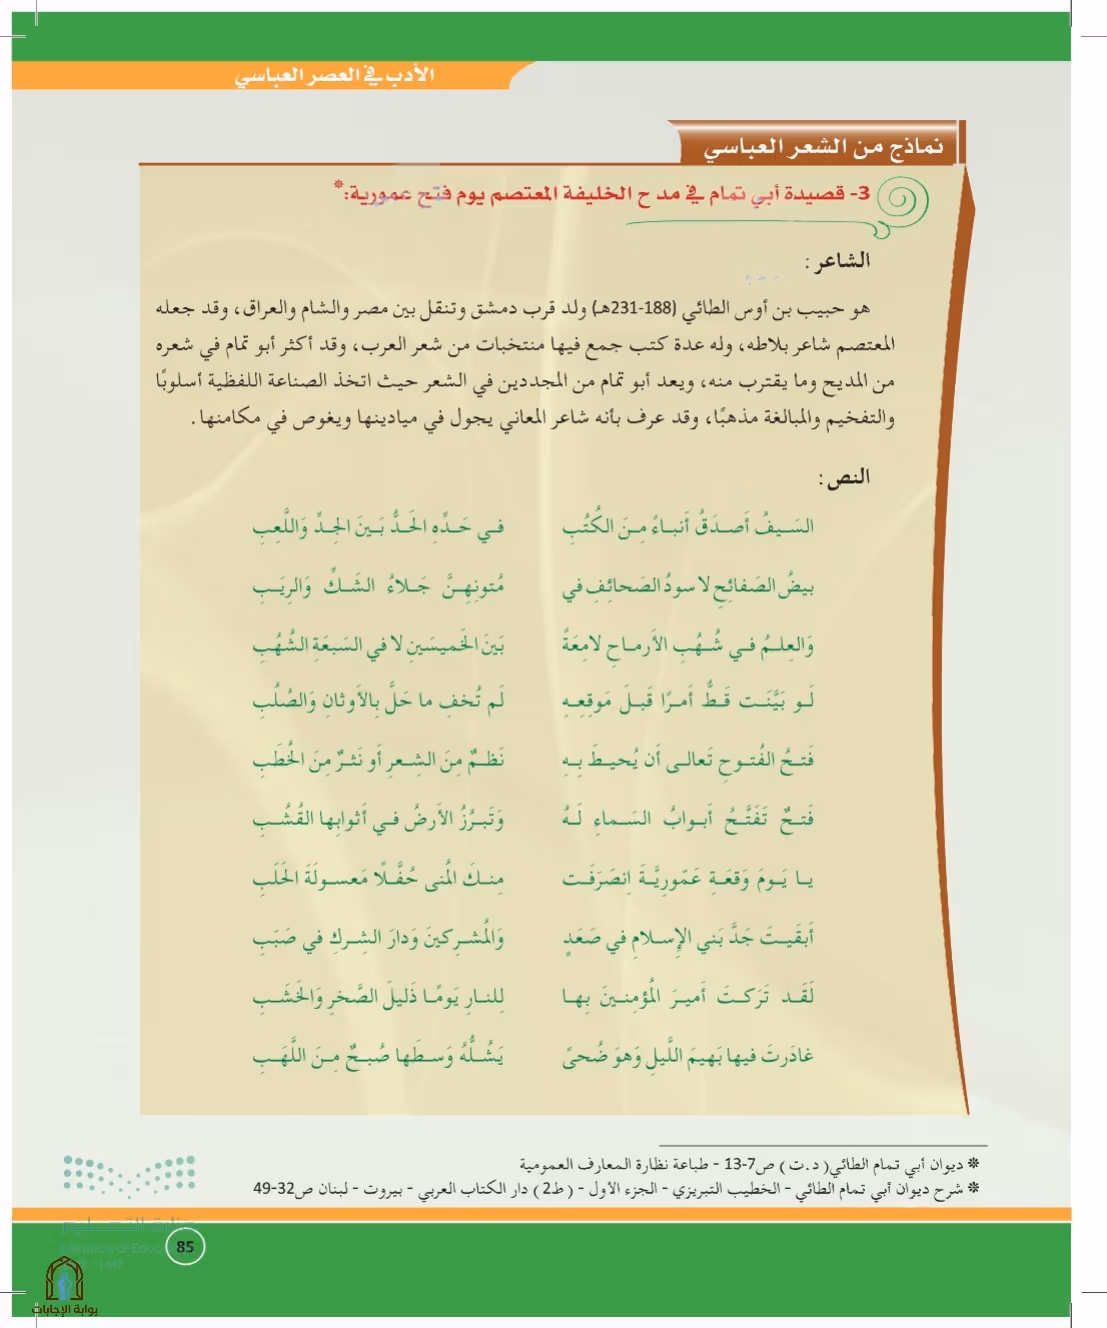 الأدب في العصر العباسي
نماذج من الشعر العباسي
3- قصيدة أبي تمام في مدح الخليفة المعتصم يوم فتح عمورية:*
الشاعر:
هو حبيب بن أوس الطائي (188-231هـ) ولد قرب دمشق وتنقل بين مصر والشام والعراق، وقد جعله
المعتصم شاعر بلاطه، وله عدة كتب جمع فيها منتخبات من شعر العرب، وقد أكثر أبو تمام في شعره
من المديح وما يقترب منه، ويعد أبو تمام من المجددين في الشعر حيث اتخذ الصناعة اللفظية أسلوبًا
والتفخيم والمبالغة مذهبًا، وقد عرف بأنه شاعر المعاني يجول في ميادينها ويغوص في مكامنها.
النص:
السَيفُ أَصدَقُ أَنباءً مِنَ الكُتُبِ في حَدِّهِ الحَدُّ بَينَ الجِدِّ وَاللَّعِبِ
بيضُ الصَفائِحِ لا سودُ الصَحائِفِ في مُتونِهِنَّ جَلاءُ الشَكِّ وَالرِيَبِ
وَالعِلمُ في شُهُبِ الأَرماحِ لامِعَةً بَينَ الخَميسَينِ لا في السَبعَةِ الشُهُبِ
لَو بَيَّنَت قَطُّ أَمرًا قَبلَ مَوقِعِهِ لَم تُخفِ ما حَلَّ بِالأَوثانِ وَالصُلُبِ
فَتحُ الفُتوحِ تَعالى أَن يُحيطَ بِهِ نَظمٌ مِنَ الشِعرِ أَو نَثرٌ مِنَ الخُطَبِ
فَتحٌ تَفَتَّحُ أَبوابُ السَماءِ لَهُ وَتَبرُزُ الأَرضُ في أَثوابِها القُشُبِ
يا يَومَ وَقعَةِ عَمّورِيَّةَ اِنصَرَفَت مِنكَ المُنى حُفَّلًا مَعسولَةَ الحَلَبِ
أَبقَيتَ جَدَّ بَني الإِسلامِ في صَعَدٍ وَالمُشرِكينَ وَدارَ الشِركِ في صَبَبِ
لَقَد تَرَكتَ أَميرَ المُؤمِنينَ بِها لِلنارِ يَومًا ذَليلَ الصَّخرِ وَالخَشَبِ
غادَرتَ فيها بَهيمَ اللَّيلِ وَهوَ ضُحىً يَشُلُّهُ وَسطَها صُبحٌ مِنَ اللَّهَبِ
* ديوان أبي تمام الطائي(د.ت) ص7-13 - طباعة نظارة المعارف العمومية
* شرح ديوان أبي تمام الطائي - الخطيب التبريزي - الجزء الأول - (ط2) دار الكتاب العربي - بيروت - لبنان ص32-49
وزارة التعليم
Ministry of Educ
1447
85
بوابة الإجابات